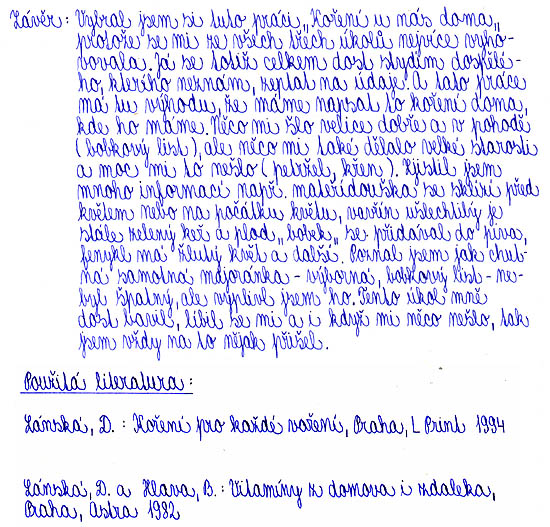 Závěr: Vybral jsem si tuto práci „Koření u nás doma„
protože se mi ze všech třech úkolů nejvíce vyho-
bovala. Já se totiž celkem dost stydím dospělé-
ho, kterého neznám, zeptat na údaje. A tato práce
má tu výhodu, že máme napsat to koření doma,
kde ho máme. Něco mi šlo velice dobře a v pohodě
(bobkový list), ale něco mi také dělalo velké starosti
a moc mi to nešlo (petržel, křen). Zjistil jsem
mnoho informací např. mateřídouška se sklízí před
květem nebo na počátku květu, vavřín ušlechtilý je
stále zelený keř a plod „bobek„ se přidával do piva,
fenykl má žlutý květ a další. Poznal jsem jak chut-
ná samotná majoránka - výborná, bobkový list - ne-
byl špatný, ale vyplivl jsem ho. Tento úkol mně
dost bavil, líbil se mi a i když mi něco nešlo, tak
jsem vždy na to nějak přišel.
Použitá literatura:
Lánská, D.: Koření pro každé vaření, Praha, L Print 1994
Lánská, D. a Hlava, B.: Vitamíny z domova i zdaleka,
Praha, Astra 1982